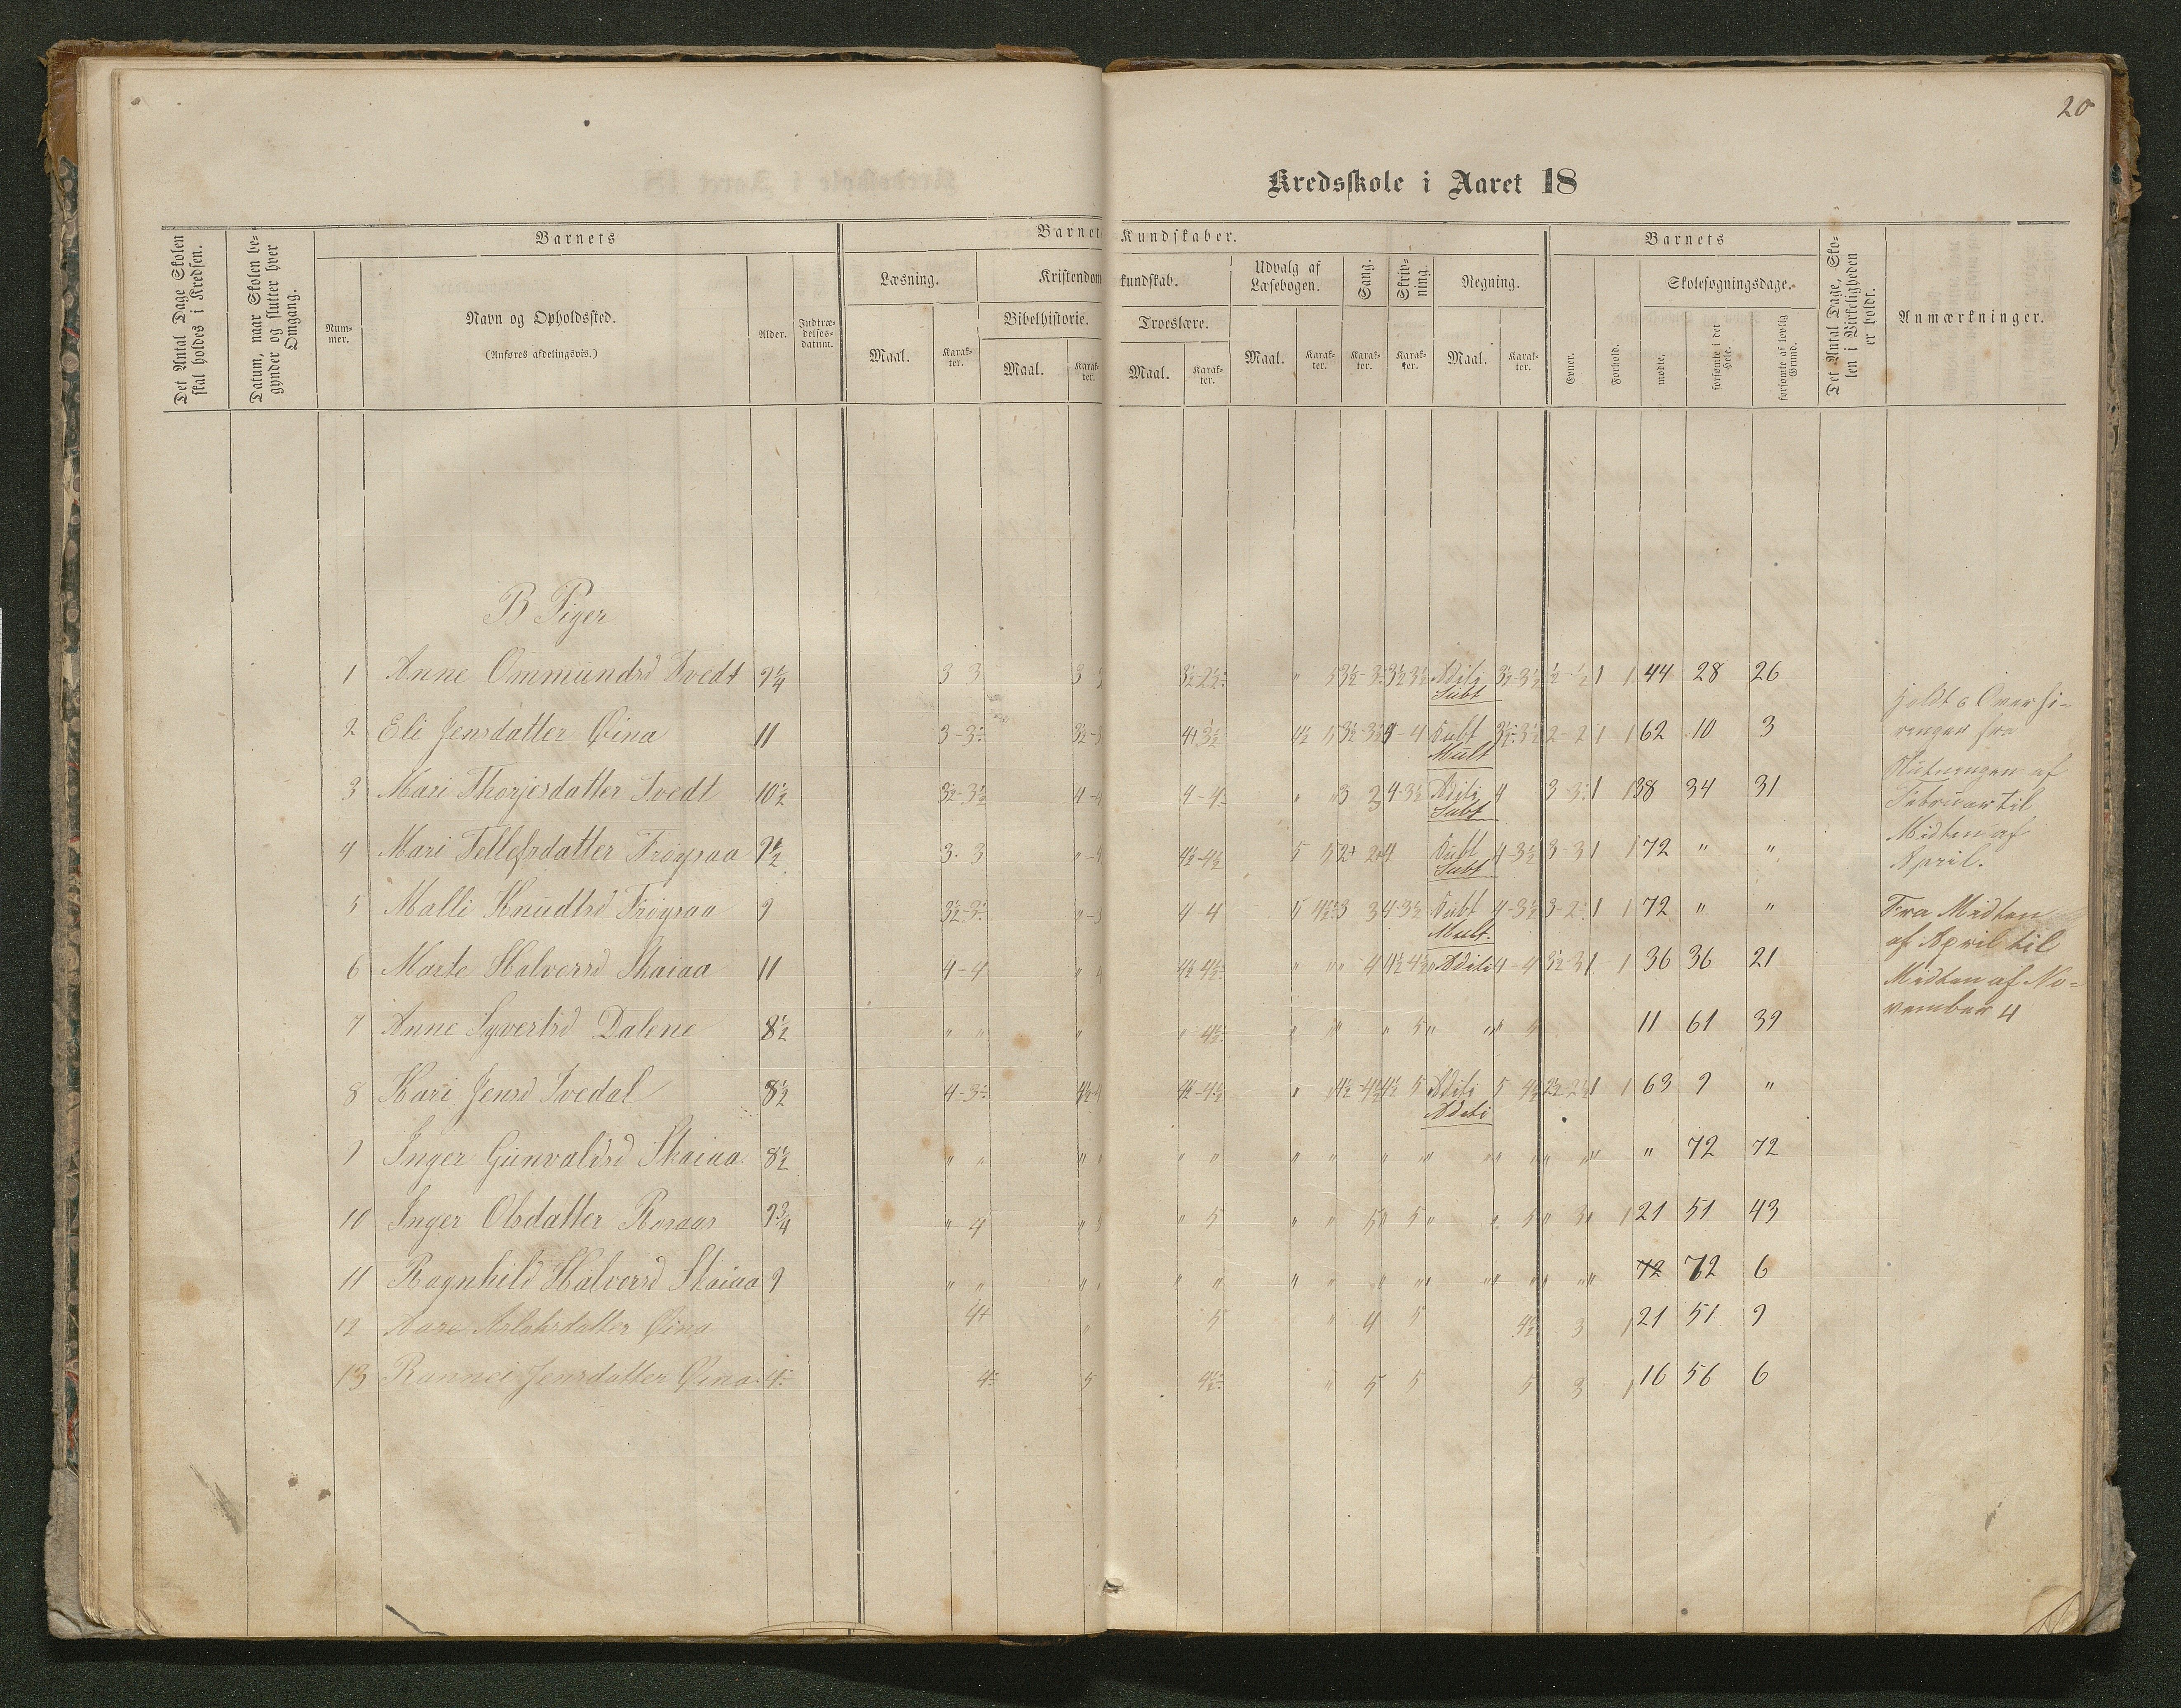 20
Kredsskole i Aaret 18
Det Antal Dage Skolen skal holdes i Kredsen.
Datum, naar Skolen begynder og slutter hver Omgang.
Barnets
Nummer.
Navn og Opholdssted.
(Anføres afdelingsvis.)
Alder.
Indtrædelsesdatum.
Barnets Kundskaber.
Læsning.
Maal.
Karakter.
Kristendomskundskab.
Bibelhistorie.
Maal.
Karakter.
Troeslære.
Maal.
Karakter.
Udvalg af Læsebogen.
Maal.
Karakter.
Sang.
Karakter.
Skrivning.
Karakter.
Regning.
Maal.
Karakter.
Barnets
Evner.
Forhold.
Skolesøgningsdage.
mødte.
forsømte i det Hele.
forsømte af lovlig Grund.
Det Antal Dage, Skolen i Virkeligheden er holdt.
Anmærkninger.
B Piger
1 Anne Ommundsd Tvedt 9¼ 3 3 3 3½-2½ " 5 3½-3 3½ 3½ Aditi Subt 3½-3½ 1 1 44 28 26
2 Eli Jensdatter Øina 11 3-3 3½-3 4+3½ 4½ 5 Subt Mult 3½-3½ 2-2 1 1 62 10 3
3 Mari Thorjesdatter Tvedt 10½ 3½-3½ 4-4 4-4 " " 3 3 4-3½ Aditi Subt 4 3-3 1 1 38 34 31
4 Mari Tellefsdatter Frøysaa 9½ 3-3 "-4 4½-4½ 5 5 2+ 2+ 4 Subt Subt 4-3½ 3-3 1 1 72 " "
5 Malli Knudtsd Frøysaa 9 3½-3 "-3 4-4 5 4½ 3 3 4-3½ Subt Mult. 4-3½ 3-2 1 1 72 " "
6 Marte Halvorsd Skaiaa 11 4-4 " 4 4½-4½ " " " 4 4½-4½ Aditi 4-4 3½-3 1 1 36 36 21
7 Anne Syvertsd Dalene 8½ " " " " 4½ " " " 5 " " 5 11 61 39
8 Kari Jensd Tvedal 8½ 4-3 4½-4 4½-4½ " 4½-4½ 4½ 5 Aditi Aditi 5 4½ 2½-2½ 1 1 63 9 "
9 Inger Gunvaldsd Skaiaa 8½ " " " " " " " " " " " " " " " " 72 72
10 Inger Olsdatter Rosaas 9¾ " 4 " 3 " 5 " " 5 5 " " 5 " 3 1 21 51 43
11 Ragnhild Halvorsd Skaiaa 9 " " " " " " " " " " " " " " " 72 72 6
12 Aase Aslaksdatter Øina 4+ " 5 " 4 5 4½ 3 1 21 51 9
13 Rannei Jensdatter Øina 4 4 5 4½ " 5 5 5 3 1 16 56 6
holdt 6
ringer fra
Slutningen af
Februar til
Midten af
April.
Fra Midten
af April til
Midten af No-
vember 4